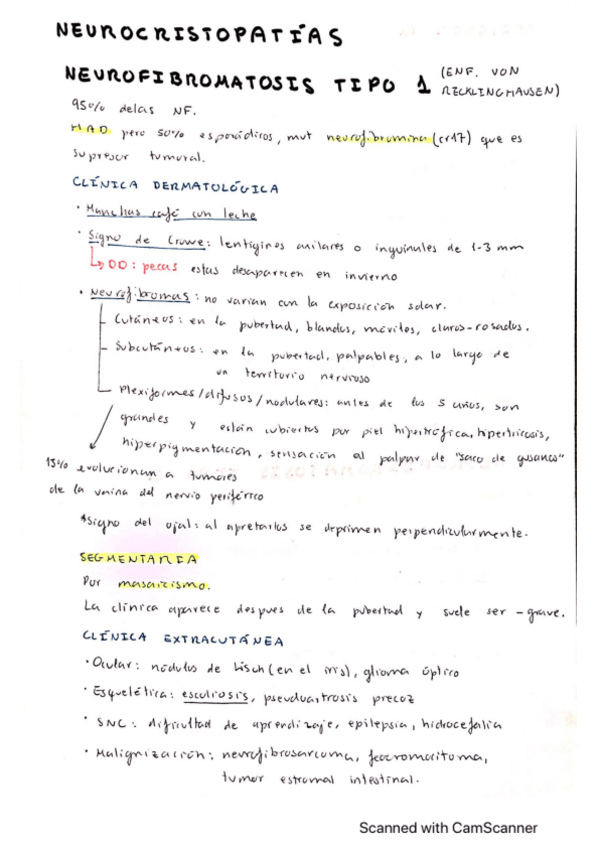 NEUROCRISTOPATÍAS
NEUROFIBROMATOSIS TIPO 1 (ENF. VON RECKLINGHAUSEN)
95% de las NF.
HAD pero 50% esporádicos, mut neurofibromina (cr17) que es
supresor tumoral.
CLÍNICA DERMATOLÓGICA
· Manchas café con leche
· Signo de Crowe: lentigines axilares o inguinales de 1-3 mm
↳ DD: pecas estas desaparecen en invierno
· Neurofibromas: no varian con la exposición solar.
- Cutáneos: en la pubertad, blandos, móviles, claros-rosados.
- Subcutáneos: en la pubertad, palpables, a lo largo de
un territorio nervioso
- Plexiformes/difusos/nodulares: antes de los 5 años, son
grandes y están cubiertos por piel hipertrófica, hipertricosis,
hiperpigmentación, sensación al palpar de "saco de gusanos"
15% evolucionan a tumores
de la vaina del nervio periférico
*Signo del ojal: al apretarlos se deprimen perpendicularmente.
SEGMENTARIA
Por mosaicismo.
La clínica aparece despues de la pubertad y suele ser - grave.
CLÍNICA EXTRACUTÁNEA
· Ocular: nódulos de Lisch (en el iris), glioma óptico
· Esquelética: escoliosis, pseudoartrosis precoz
· SNC: dificultad de aprendizaje, epilepsia, hidrocefalia
· Malignización: neurofibrosarcoma, feocromocitoma,
tumor estromal intestinal.
Scanned with CamScanner